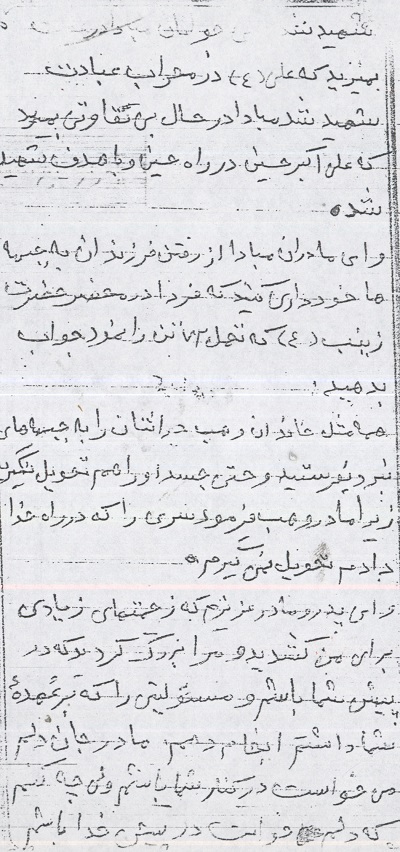 شهید شد
بمیرید که علی (ع) در محراب عبادت
شهید شد مبادا در حال بی تفاوتی بمیرید
که علی اکبر حسین در راه حسین و با هدف شهید
شده
و ای مادران مبادا از رفتن فرزندان به جبهه
ها خودداری کنید که فردا در محضر حضرت
زینب (ع) که تحمل ۷۲ تن را نمود جواب
بدهید
همه مثل خاندان وهب جوانتان را به جبهه های
نبرد بفرستید و حتی جسد او را هم تحویل نگیرید
زیرا مادر وهب فرمود سری را که در راه خدا
دادم تحویل نمی گیرم
و ای پدر و مادر عزیزم که زحمتهای زیادی
برای من کشیدید و مرا بزرگ کردید که در
پیش شما باشم و مسئولیتی را که بر عهدهٔ
شما داشتم انجام دهم مادر جان دلم
می خواست در کنار شما باشم ولی چه کنم
که دلم خواست در پیش خدا باشم